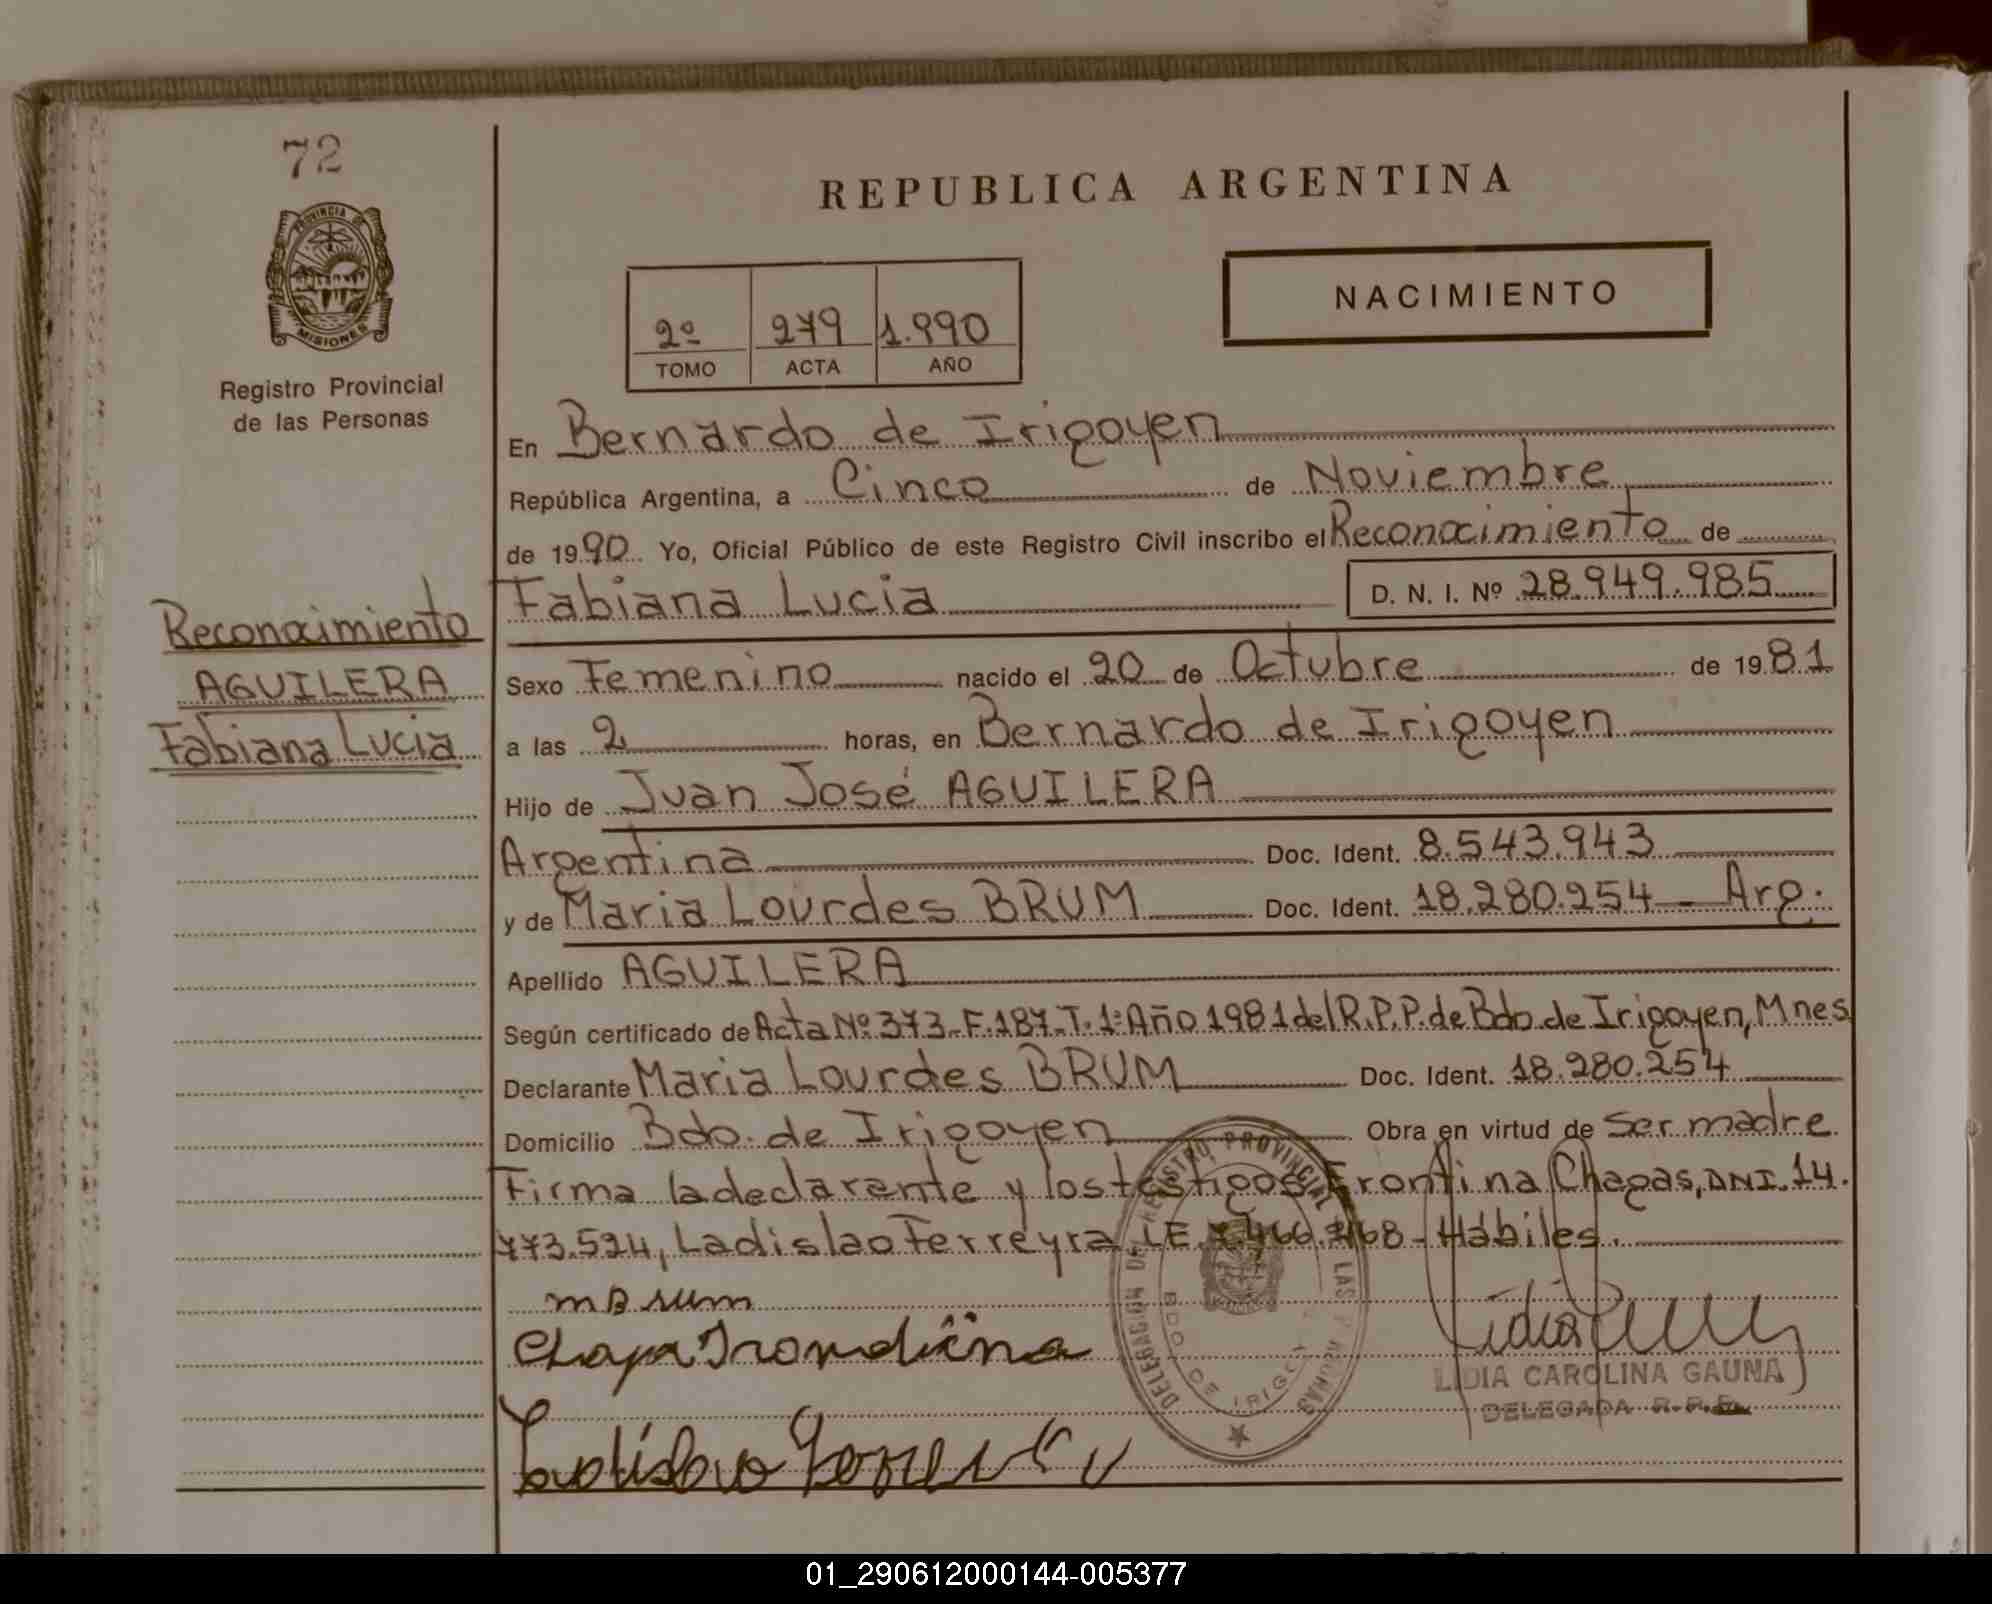 72
PROVINCIA DE
MISIONES
Registro Provincial
de las Personas
REPUBLICA ARGENTINA
NACIMIENTO
2º 279 1.990
TOMO ACTA AÑO
En Bernardo de Irigoyen
República Argentina, a Cinco de Noviembre
de 1990 Yo, Oficial Público de este Registro Civil inscribo el Reconocimiento de
Fabiana Lucia D. N. I. Nº 28.949.985
Reconocimiento
AGUILERA
Fabiana Lucia
Sexo Femenino nacido el 20 de Octubre de 1981
a las 2 horas, en Bernardo de Irigoyen
Hijo de Juan José AGUILERA
Argentina Doc. Ident. 8.543.943
y de Maria Lourdes BRUM Doc. Ident. 18.280.254 - Arg.
Apellido AGUILERA
Según certificado de Acta Nº 373-F.187-T.1º Año 1981 del R.P.P. de Bdo. de Irigoyen, Mnes
Declarante Maria Lourdes BRUM Doc. Ident. 18.280.254
Domicilio Bdo. de Irigoyen Obra en virtud de ser madre
Firma la declarante y los testigos Frontina Chagas, DNI. 14.
773.524, Ladislao Ferreyra LE. - Hábiles.
m Brum
LIDIA CAROLINA GAUNA
DELEGADA R.P.P.
01_290612000144-005377